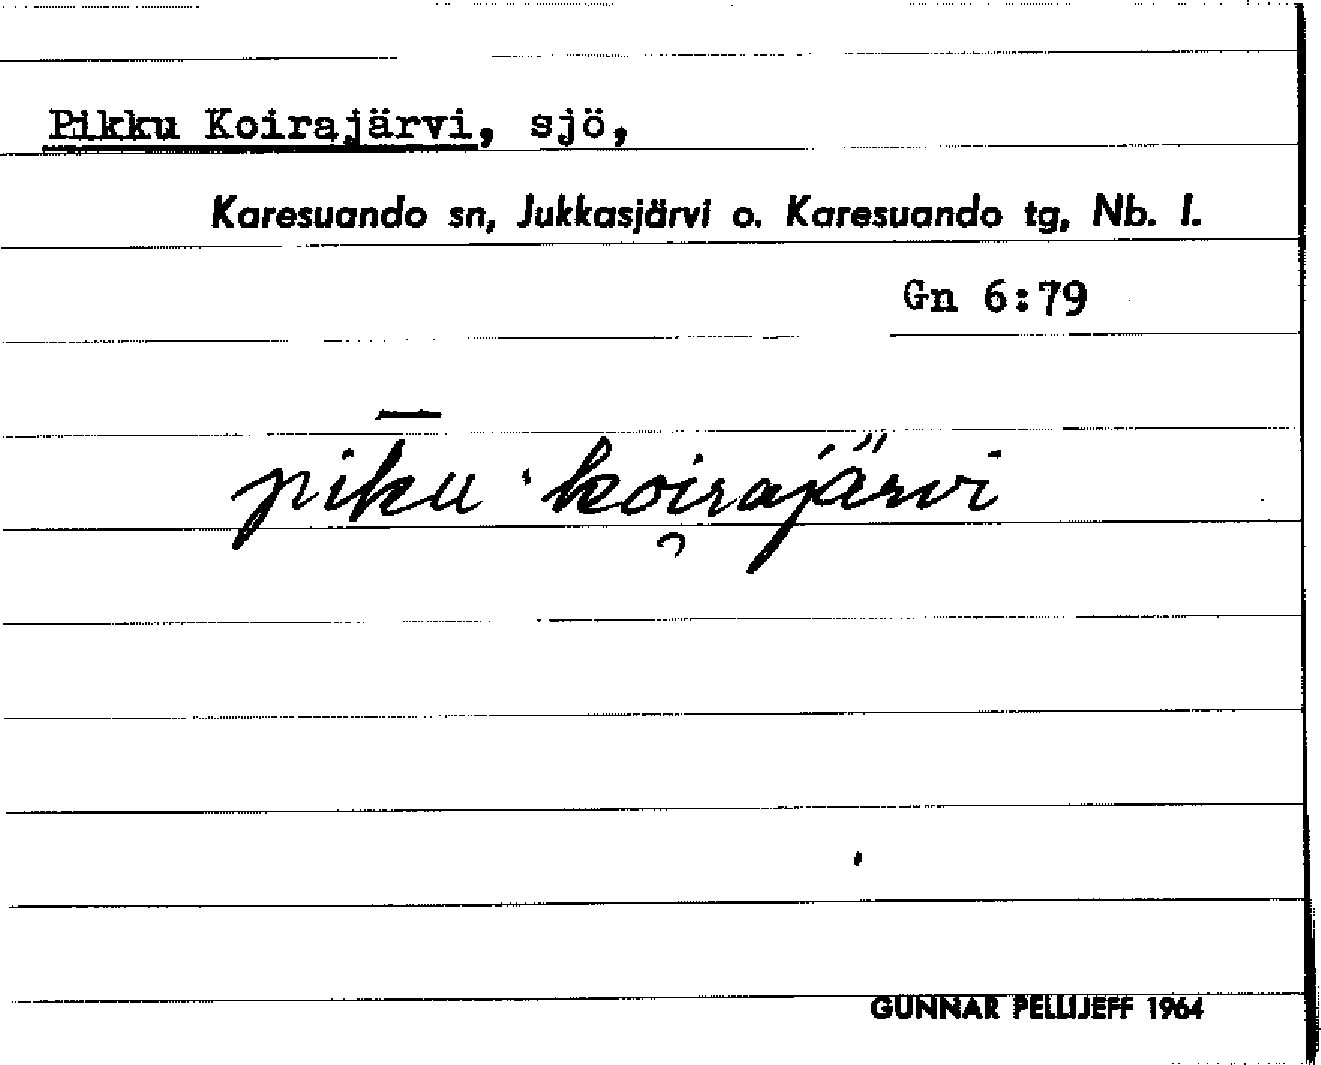 Pikku Koirajärvi, sjö,
Karesuando sn, Jukkasjärvi o. Karesuando tg, Nb. l.
Gn 6:79
pik̄u ˈkoirạˌjärvi
GUNNAR PELLIJEFF 1964